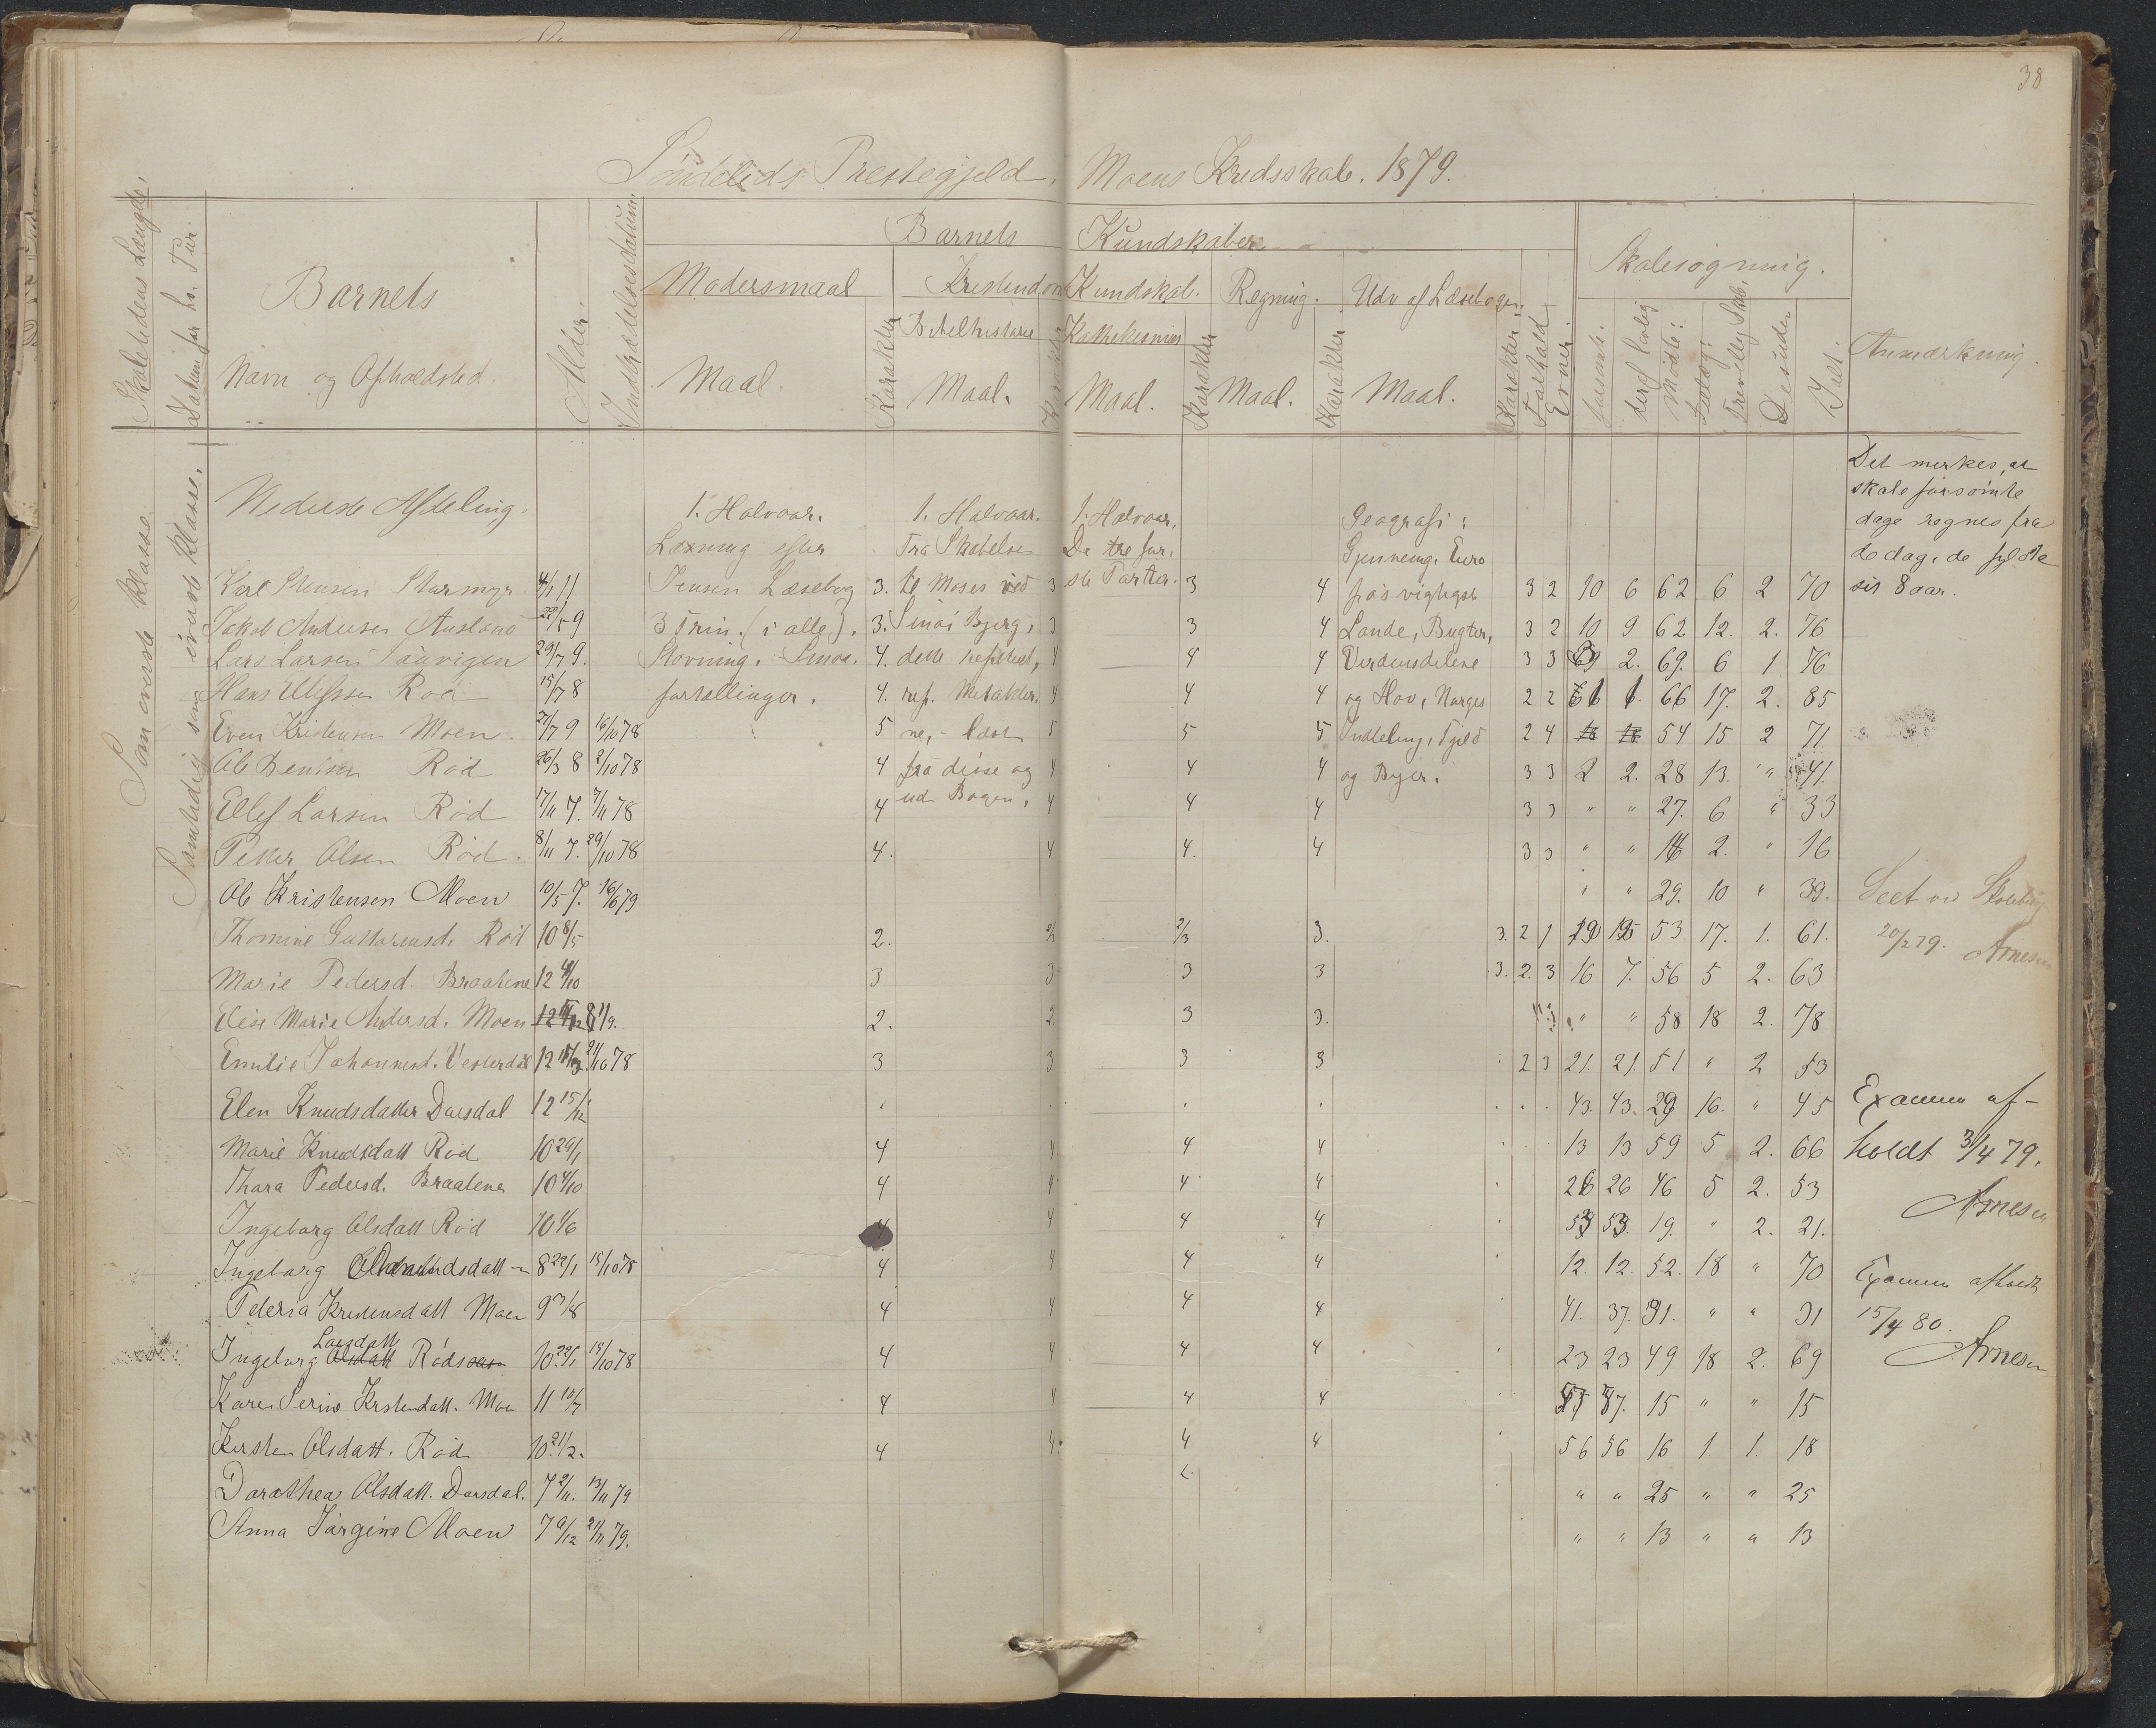 38
Söndeleds Prestegjeld, Moens Kredsskole. 1879.
Skoletidens Længde,
Datum for hv. Tur.
Barnets
Navn og Opholdsted.
Alder.
Indtrædelsesdatum.
Barnets Kundskaber
Modersmaal
Maal.
Karakter
Kristendoms Kundskab.
Bibelhistorie
Maal.
Karakter
Katkekismus
Maal.
Karakter
Regning.
Maal.
Karakter
Udv af Læsebogen.
Maal.
Karakter
Forhold
Evner.
Skolesøgning.
forsømte.
deraf lovlig
Mødte:
frivillig Skole,
Desuden
Ialt.
Anmærkning.
Som øverste klasse.
Samtidig som øverste klasse.
Nederste Afdeling.
1. Halvaar. 1. Halvaar. 1. Halvaar. Geografi:
Læsning efter Fra Skabelsen De tre før- Gjennemg. Euro
Karl Stensen Stormyr 4/1 11 Jensen Læsebog 3. til Moses ved 3 ste Parter. 3 4 pas vigtigst 3 2 10 6 62 6 2 70
Jakob Andersen Ausland 22/5 9 3 Trin. (i alle). 3. Sinai Bjerg, 3 3 4 Lande, Bugter, 3 2 10 9 62 12. 2. 76
Lars Larsen Saavigen 29/7 9. Stavning. Smaa. 4. dette repeteret, 4 4 4 Verdensdelene 3 3 69 2. 69. 6 1 76
Hans Ulefssen Rød 15/7 8 fortællinger. 4. rep. 4 4 4 og Hav, Norges 2 2 61 1. 66 17. 2. 85
Even Kristensen Moen. 27/7 9 16/10 78 5 ne, - læst 5 5 5 Inddeling, Fjeld 2 4 18 18 54 15 2 71
Ole Bentsen Rød 26/3 8 2/10 78 4 fra disse og 4 4 4 og Byer. 3 3 2 2. 28 13. " 41.
Ellef Larsen Rød 17/11 7. 7/11 78 4 ud Bogen, 4 4 4 3 3 " " 27. 6 " 33
Peter Olsen Rød. 8/11 7. 29/10 78 4. 4 4. 4 3 3 " " 14 2. " 16
Ole Kristensen Moen 10/5 7. 16/6 79 " " 29. 10 " 39.
Thomine Gustavensd. Rød 10 8/5 2. 2 2/3 3. 3. 2 1 19 15 53 17. 1. 61.
Marie Pedersd. Braatene 12 4/10 3 3 3 3 3. 2. 3 16 7. 56 5 2. 63
Elise Marie Andersd. Moen 2. 2 3 3. " " 58 18 2. 78
Emilie Johannesd. Vesterdal 12 21/10 78 3 3 3 3 2 3 21. 21. 51 " 2 53
Elen Knudsdatter Darsdal 12 15/12 43. 43. 29 16. " 45
Marie Knudsdatt Rød 10 29/1 4 4 4 4 13 13 59 5 2. 66
Thara Pedersd. Braatene 10 4/10 4 4 4 4 26 26 46 5 2. 53
Ingeborg Olsdatt Rød 10 1/6 4 4 4 4 53 53. 19. " 2. 21.
Ingeborg 8 22/1 15/10 78 4 4 4 4 12. 12. 52. 18 " 70
Pederia Kristensdatt Moen 9 3/8 4 4 4 4 41. 37. 31. " " 31
Larsdatt
Ingeborg Olsdatt Rødsaas 10 22/1 15/10 78 4 4 4 4 23 23 49 18 2. 69
Karen Serine Kristendatt. Moe 11 10/7 4 4 4 4 57 57. 15 " " 15
Kirsten Olsdatt. Rød 10 21/2. 4 4. 4 4 56 56 16 1. 1. 18
Dorothea Olsdatt. Darsdal. 7 2/11. 13/11 79 " " 25 " " 25
Anna Jørgine Moen 7 9/12 21/11 79. " " 13 " " 13
Det merkes, at
skole forsømte
dage regnes fra
de dag, de fyldte
sit 8 aar.
Seet ved Skolebesøg
20/2 79. Arnesen
Examen af-
holdt 3/4 79.
Arnesen
Examen afholdt
15/4 80.
Arnesen